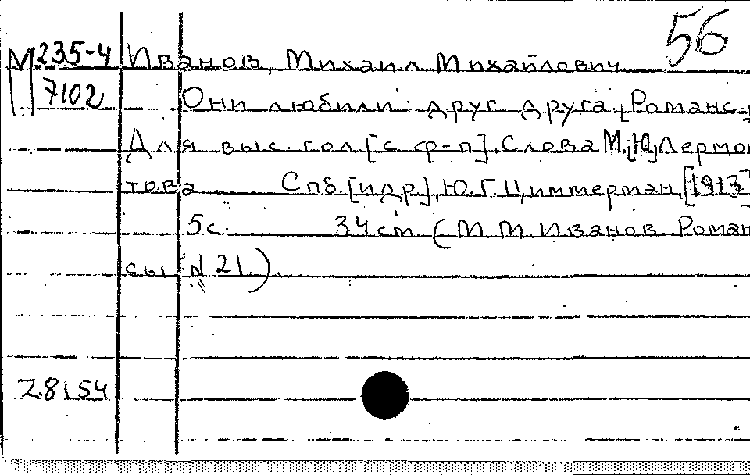 56
М 235-4 Иванов, Михаил Михайлович
7102 Они любили друг друга. [Романс.]
Для выс. гол. [с ф-п]. Слова М.[Ю.] Лермон
това Спб. [и др.], Ю.Г. Циммерман, [1913]
5 с. 34 см (М. М. Иванов Роман
сы № 21)
Z8154